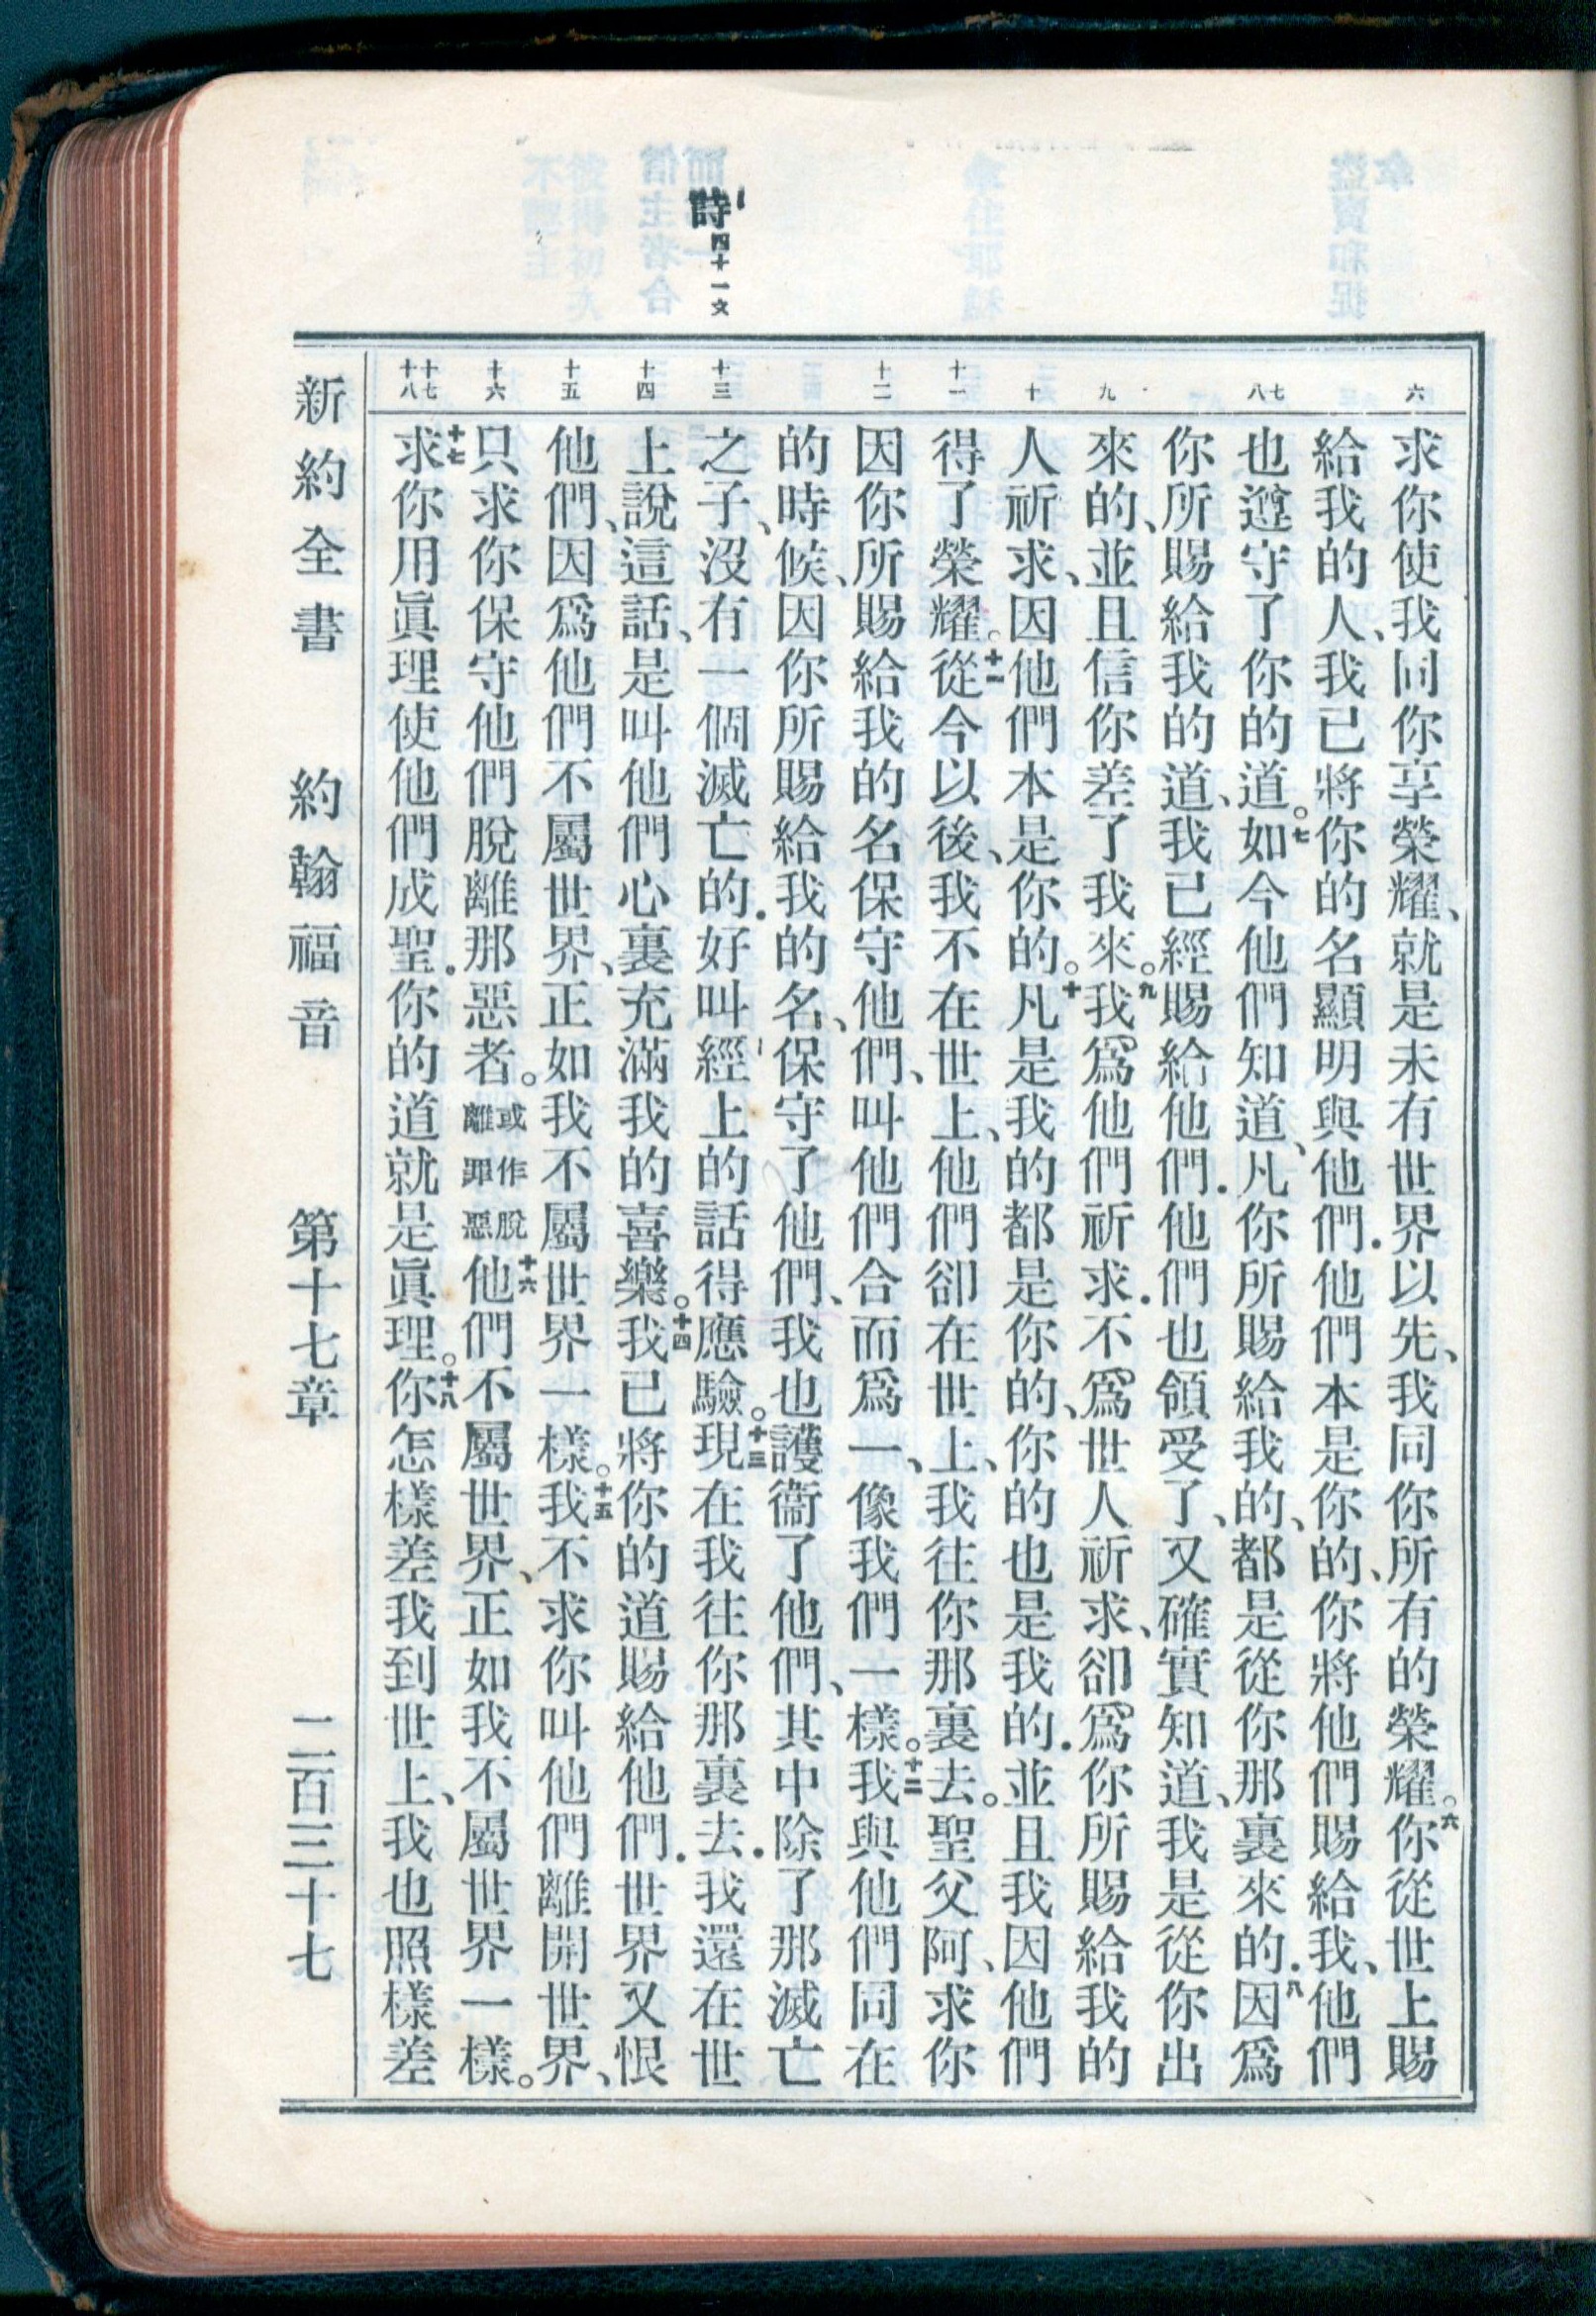 詩四十一文
六
七
八
九
十
十一
十二
十三
十四
十五
十六
十七
十八
求你使我同你享榮耀、就是未有世界以先、我同你所有的榮耀。六你從世上賜
給我的人、我已將你的名顯明與他們．他們本是你的、你將他們賜給我、他們
也遵守了你的道。七如今他們知道、凡你所賜給我的、都是從你那裏來的．八因爲
你所賜給我的道、我已經賜給他們．他們也領受了、又確實知道、我是從你出
來的、並且信你差了我來。九我爲他們祈求．不爲世人祈求、卻爲你所賜給我的
人祈求、因他們本是你的。十凡是我的都是你的、你的也是我的．並且我因他們
得了榮耀。十一從今以後、我不在世上、他們卻在世上、我往你那裏去。聖父阿、求你
因你所賜給我的名保守他們、叫他們合而爲一、像我們一樣。十二我與他們同在
的時候、因你所賜給我的名、保守了他們、我也護衞了他們、其中除了那滅亡
之子、沒有一個滅亡的．好叫經上的話得應驗。十三現在我往你那裏去．我還在世
上說這話、是叫他們心裏充滿我的喜樂。十四我已將你的道賜給他們．世界又恨
他們、因爲他們不屬世界、正如我不屬世界一樣。十五我不求你叫他們離開世界、
只求你保守他們脫離那惡者。或作脫離罪惡十六他們不屬世界、正如我不屬世界一樣。
十七求你用眞理使他們成聖．你的道就是眞理。十八你怎樣差我到世上、我也照樣差
新約全書 約翰福音 第十七章 二百三十七